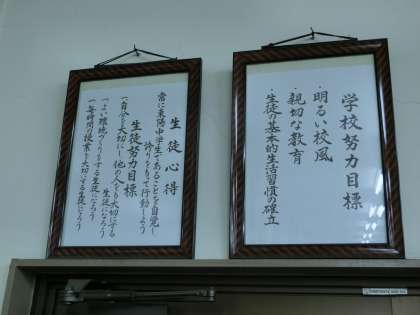 学校努力目標
・明るい校風
・親切な教育
・生徒の基本的生活習慣の確立
生徒心得
常に東陽中学生であることを自覚し
誇りをもって行動しよう
生徒努力目標
一自分を大切にし他の人をも大切にする
生徒になろう
一よい環境づくりをする生徒になろう
一毎時間の授業を大切にする生徒になろう